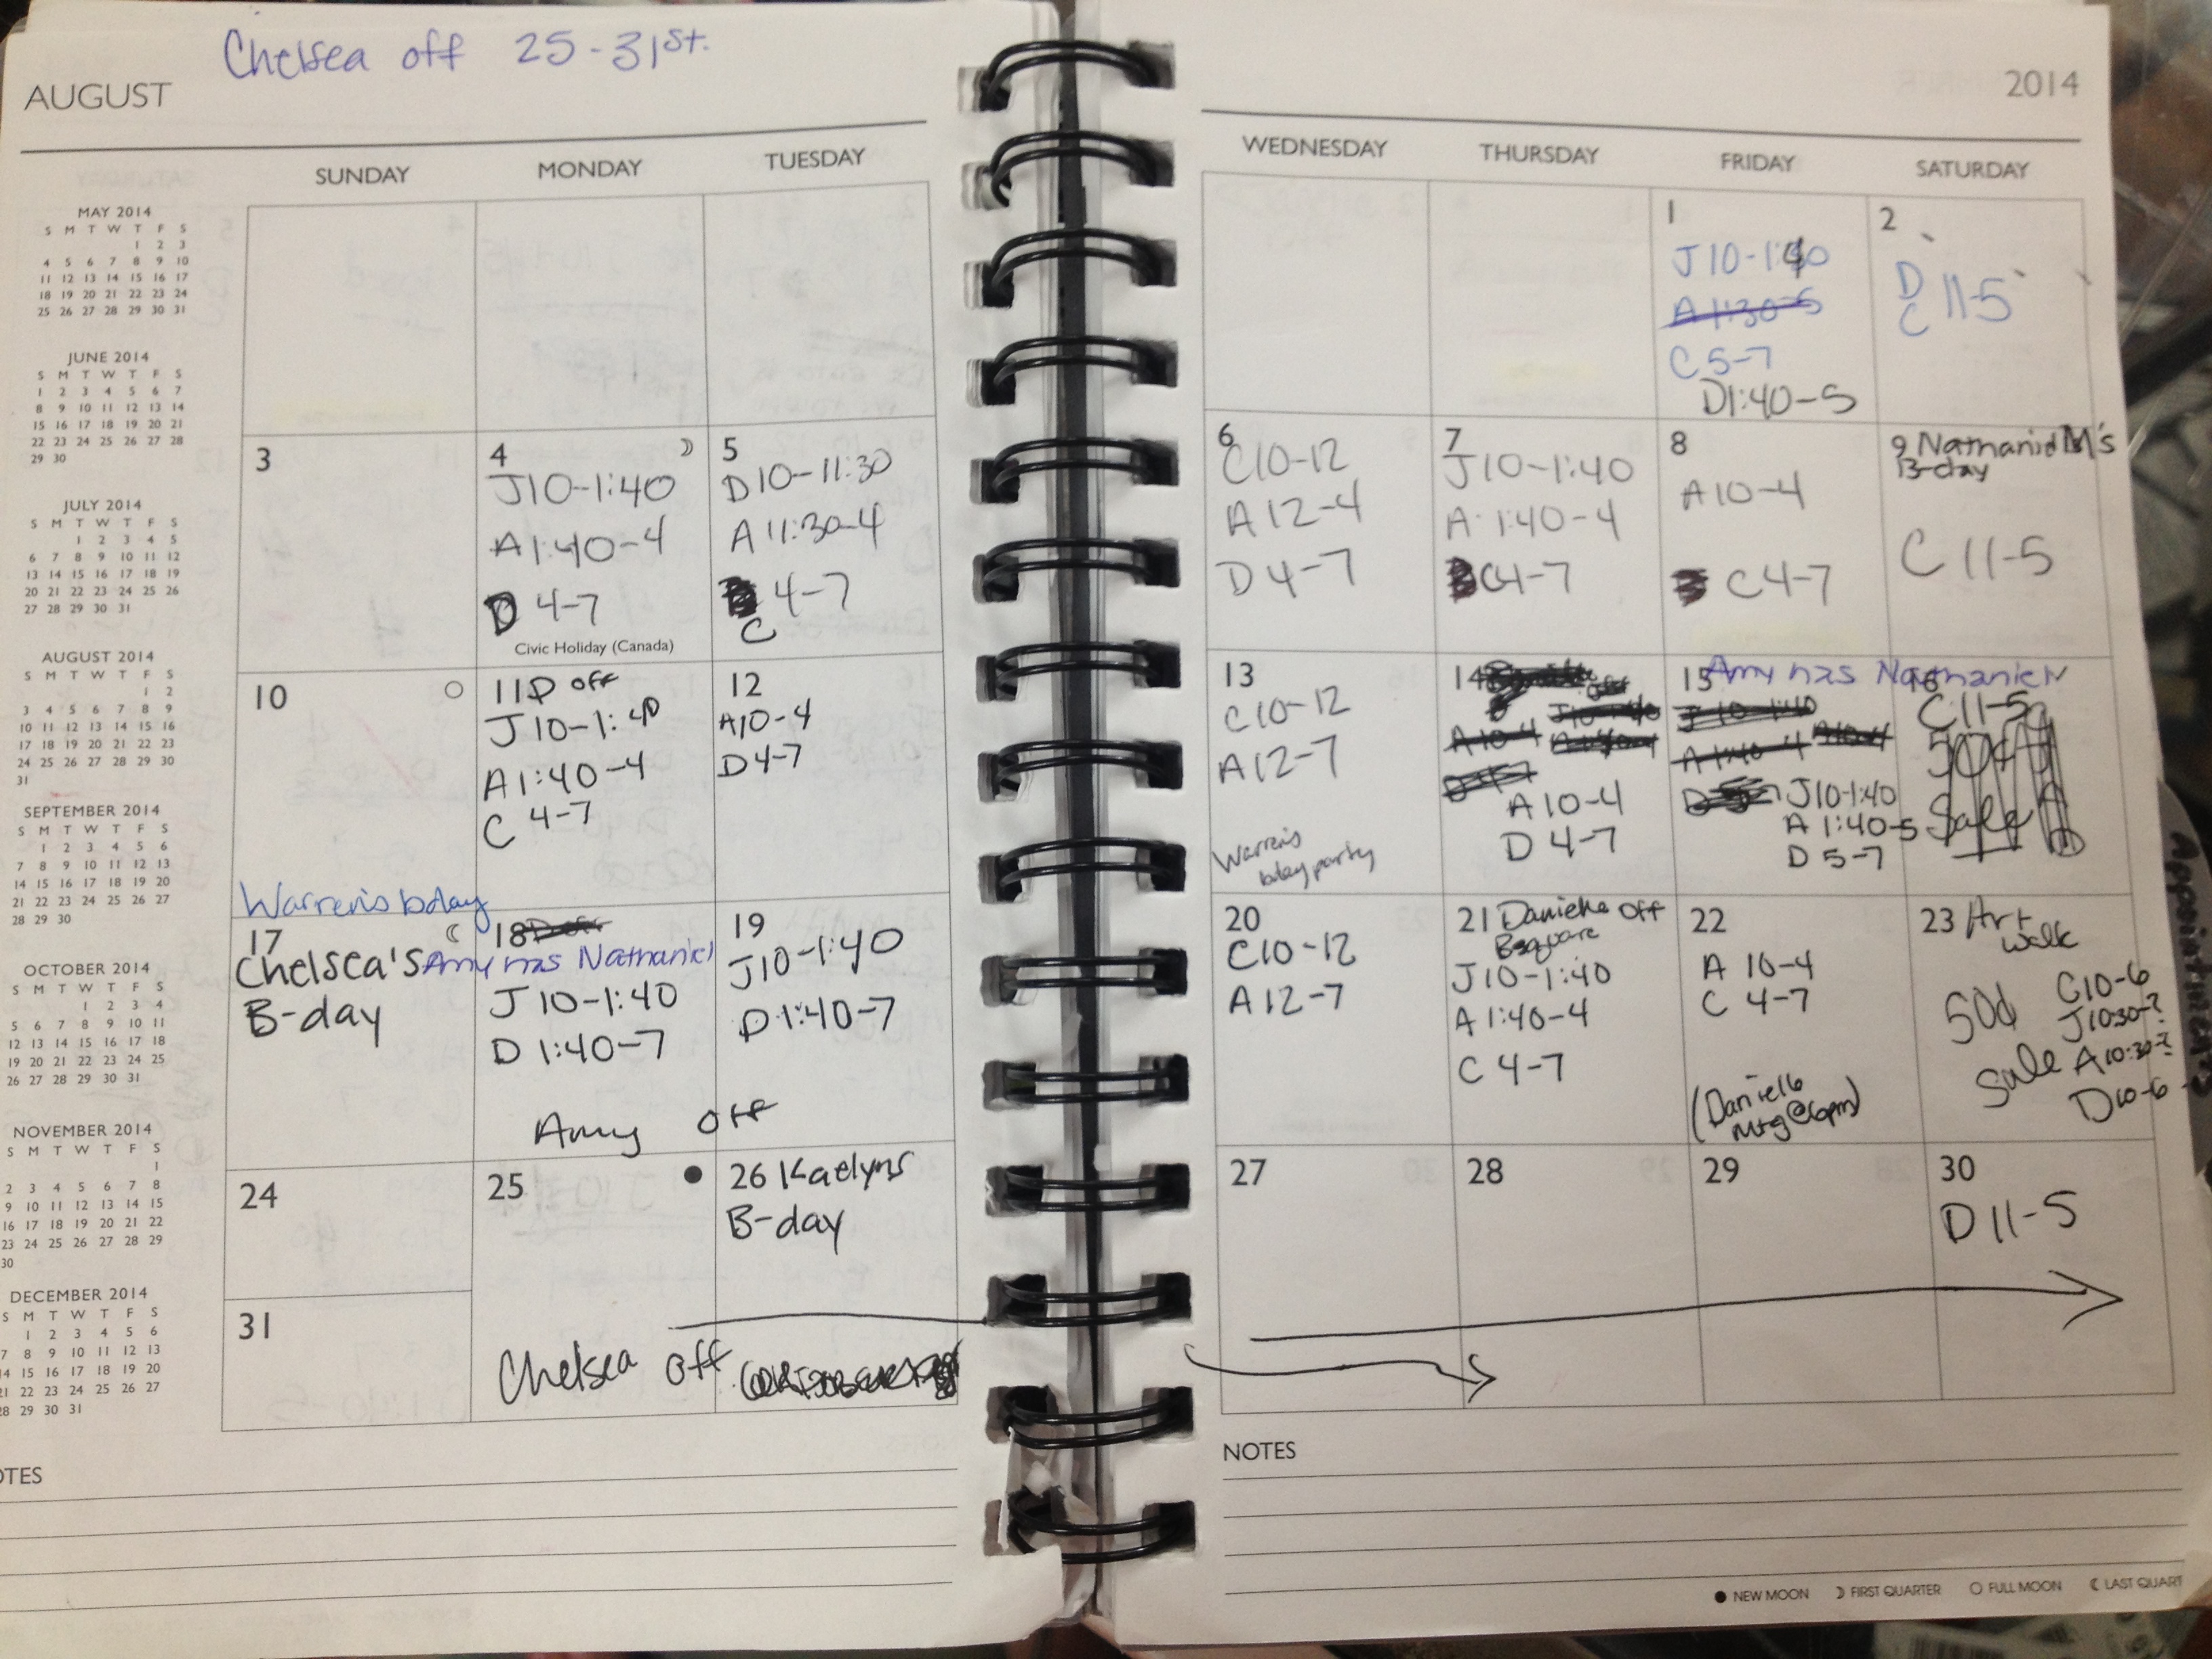 Chelsea off 25-31st.
AUGUST
2014
SUNDAY MONDAY TUESDAY
WEDNESDAY THURSDAY FRIDAY SATURDAY
MAY 2014
S M T W T F S
1 2 3
4 5 6 7 8 9 10
11 12 13 14 15 16 17
18 19 20 21 22 23 24
25 26 27 28 29 30 31
JUNE 2014
S M T W T F S
1 2 3 4 5 6 7
8 9 10 11 12 13 14
15 16 17 18 19 20 21
22 23 24 25 26 27 28
29 30
JULY 2014
S M T W T F S
1 2 3 4 5
6 7 8 9 10 11 12
13 14 15 16 17 18 19
20 21 22 23 24 25 26
27 28 29 30 31
AUGUST 2014
S M T W T F S
1 2
3 4 5 6 7 8 9
10 11 12 13 14 15 16
17 18 19 20 21 22 23
24 25 26 27 28 29 30
31
SEPTEMBER 2014
S M T W T F S
1 2 3 4 5 6
7 8 9 10 11 12 13
14 15 16 17 18 19 20
21 22 23 24 25 26 27
28 29 30
OCTOBER 2014
S M T W T F S
1 2 3 4
5 6 7 8 9 10 11
12 13 14 15 16 17 18
19 20 21 22 23 24 25
26 27 28 29 30 31
NOVEMBER 2014
S M T W T F S
1
2 3 4 5 6 7 8
9 10 11 12 13 14 15
16 17 18 19 20 21 22
23 24 25 26 27 28 29
30
DECEMBER 2014
S M T W T F S
1 2 3 4 5 6
7 8 9 10 11 12 13
14 15 16 17 18 19 20
21 22 23 24 25 26 27
28 29 30 31
1
J 10-1:40
A 1:30-5
C 5-7
D 1:40-5
2
D
C 11-5
3
4
J 10-1:40
A 1:40-4
D 4-7
Civic Holiday (Canada)
5
D 10-11:30
A 11:30-4
4-7
C
6
C 10-12
A 12-4
D 4-7
7
J 10-1:40
A 1:40-4
C 4-7
8
A 10-4
C 4-7
9 Nathaniel M's
B-day
C 11-5
10
11 D off
J 10-1:40
A 1:40-4
C 4-7
12
A 10-4
D 4-7
13
C 10-12
A 12-7
Warren's
bday party
14
off
A 10-4 J 10-1:40
A 1:40-4
D 4-7
A 10-4
D 4-7
15 Amy has Nathaniel
J 10-1:40
A 1:40-4 A 10-4
D 5-7
J 10-1:40
A 1:40-5
D 5-7
16
C 11-5
50¢
Sale
Warren's bday
17
Chelsea's
B-day
18 D off
Amy has Nathaniel
J 10-1:40
D 1:40-7
Amy off
19
J 10-1:40
D 1:40-7
20
C 10-12
A 12-7
21 Danielle off
Bsquare
J 10-1:40
A 1:40-4
C 4-7
22
A 10-4
C 4-7
(Danielle
mtg @ 6pm)
23 Art
walk
50¢
Sale
C 10-6
J 10:30-?
A 10:30-?
D 10-6
24
25
26 Kaelyns
B-day
Chelsea off
27
28
29
30
D 11-5
31
OTES
NOTES
NEW MOON FIRST QUARTER FULL MOON LAST QUART
Appointments